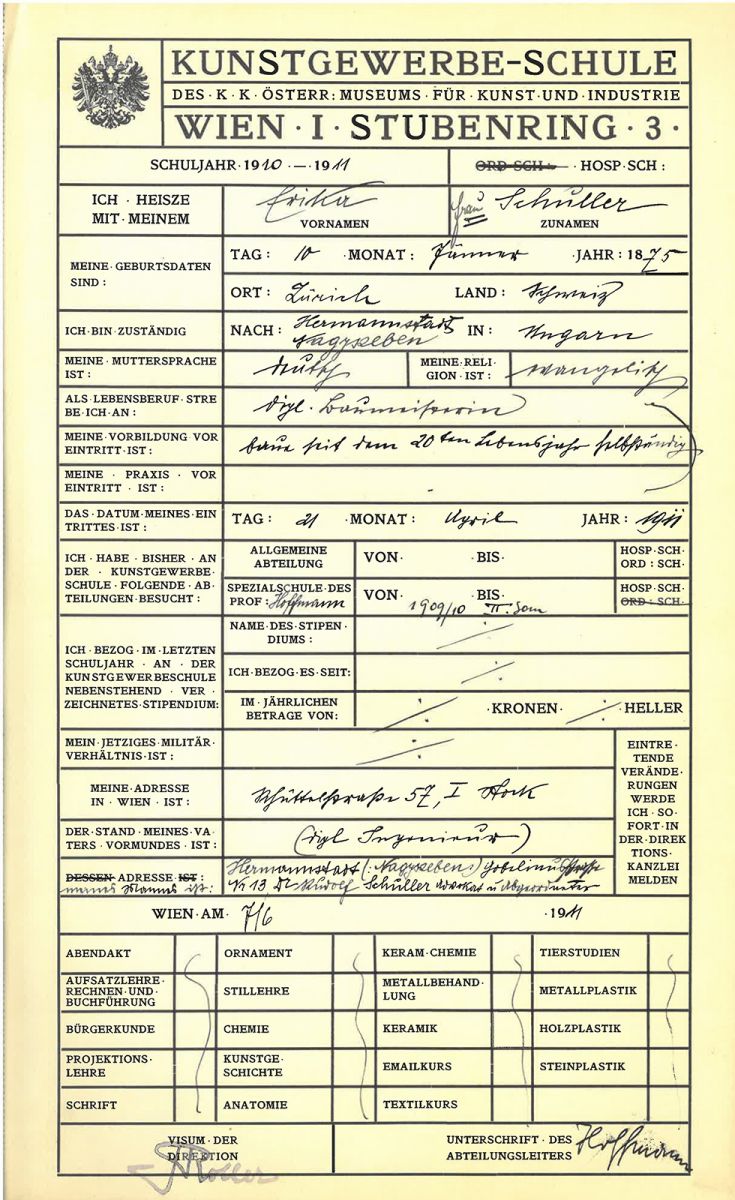 KUNSTGEWERBE-SCHULE
DES · K · K · ÖSTERR: MUSEUMS · FÜR · KUNST · UND · INDUSTRIE
WIEN · I · STUBENRING · 3 ·
SCHULJAHR · 1910 · — · 1911 ORD · SCH · HOSP · SCH :
ICH · HEISZE MIT · MEINEM
Erika VORNAMEN
Frau Schuller ZUNAMEN
MEINE · GEBURTSDATEN SIND :
TAG : 10 · MONAT : Jänner · JAHR : 1875
ORT : Zürich LAND : Schweiz
ICH · BIN · ZUSTÄNDIG NACH : Hermannstadt Nagyszeben IN : Ungarn
MEINE · MUTTERSPRACHE IST : deutsch MEINE · RELI GION · IST : evangelisch
ALS · LEBENSBERUF · STRE BE · ICH · AN : dipl. Baumeisterin
MEINE · VORBILDUNG · VOR EINTRITT · IST : baue seit dem 20ten Lebensjahr selbständig
MEINE · PRAXIS · VOR EINTRITT · IST :
DAS · DATUM · MEINES · EIN TRITTES · IST : TAG : 21 · MONAT : April JAHR : 1911
ICH · HABE · BISHER · AN · DER · KUNSTGEWERBE- SCHULE · FOLGENDE · AB · TEILUNGEN · BESUCHT :
ALLGEMEINE ABTEILUNG VON · · BIS · HOSP · SCH · ORD : SCH ·
SPEZIALSCHULE · DES PROF : Hoffmann VON · · BIS · 1909/10 II. Sem HOSP · SCH · ORD : SCH ·
ICH · BEZOG · IM · LETZTEN SCHULJAHR · AN · DER KUNSTGEWERBESCHULE NEBENSTEHEND · VER · ZEICHNETES · STIPENDIUM:
NAME · DES · STIPEN · DIUMS :
ICH · BEZOG · ES · SEIT:
IM · JÄHRLICHEN BETRAGE · VON: · KRONEN · · HELLER
MEIN · JETZIGES · MILITÄR · VERHÄLTNIS · IST :
MEINE · ADRESSE IN · WIEN · IST : Schüttelstraße 57, I Stock
DER · STAND · MEINES · VA · TERS · VORMUNDES · IST : (dipl Ingenieur)
DESSEN · ADRESSE · IST : meines Mannes ist :
Hermannstadt (: Nagyszeben)
N 13, Dr Rudolf Schuller Advokat u Abgeordneter
EINTRE · TENDE VERÄNDE · RUNGEN WERDE ICH · SO · FORT · IN DER · DIREK TIONS · KANZLEI MELDEN
WIEN · AM · 7/6 · 1911
ABENDAKT ORNAMENT KERAM · CHEMIE TIERSTUDIEN
AUFSATZLEHRE · RECHNEN · UND · BUCHFÜHRUNG STILLEHRE METALLBEHAND · LUNG METALLPLASTIK
BÜRGERKUNDE CHEMIE KERAMIK HOLZPLASTIK
PROJEKTIONS · LEHRE KUNSTGE · SCHICHTE EMAILKURS STEINPLASTIK
SCHRIFT ANATOMIE TEXTILKURS
VISUM · DER DIREKTION Roller
UNTERSCHRIFT · DES ABTEILUNGSLEITERS Hoffmann